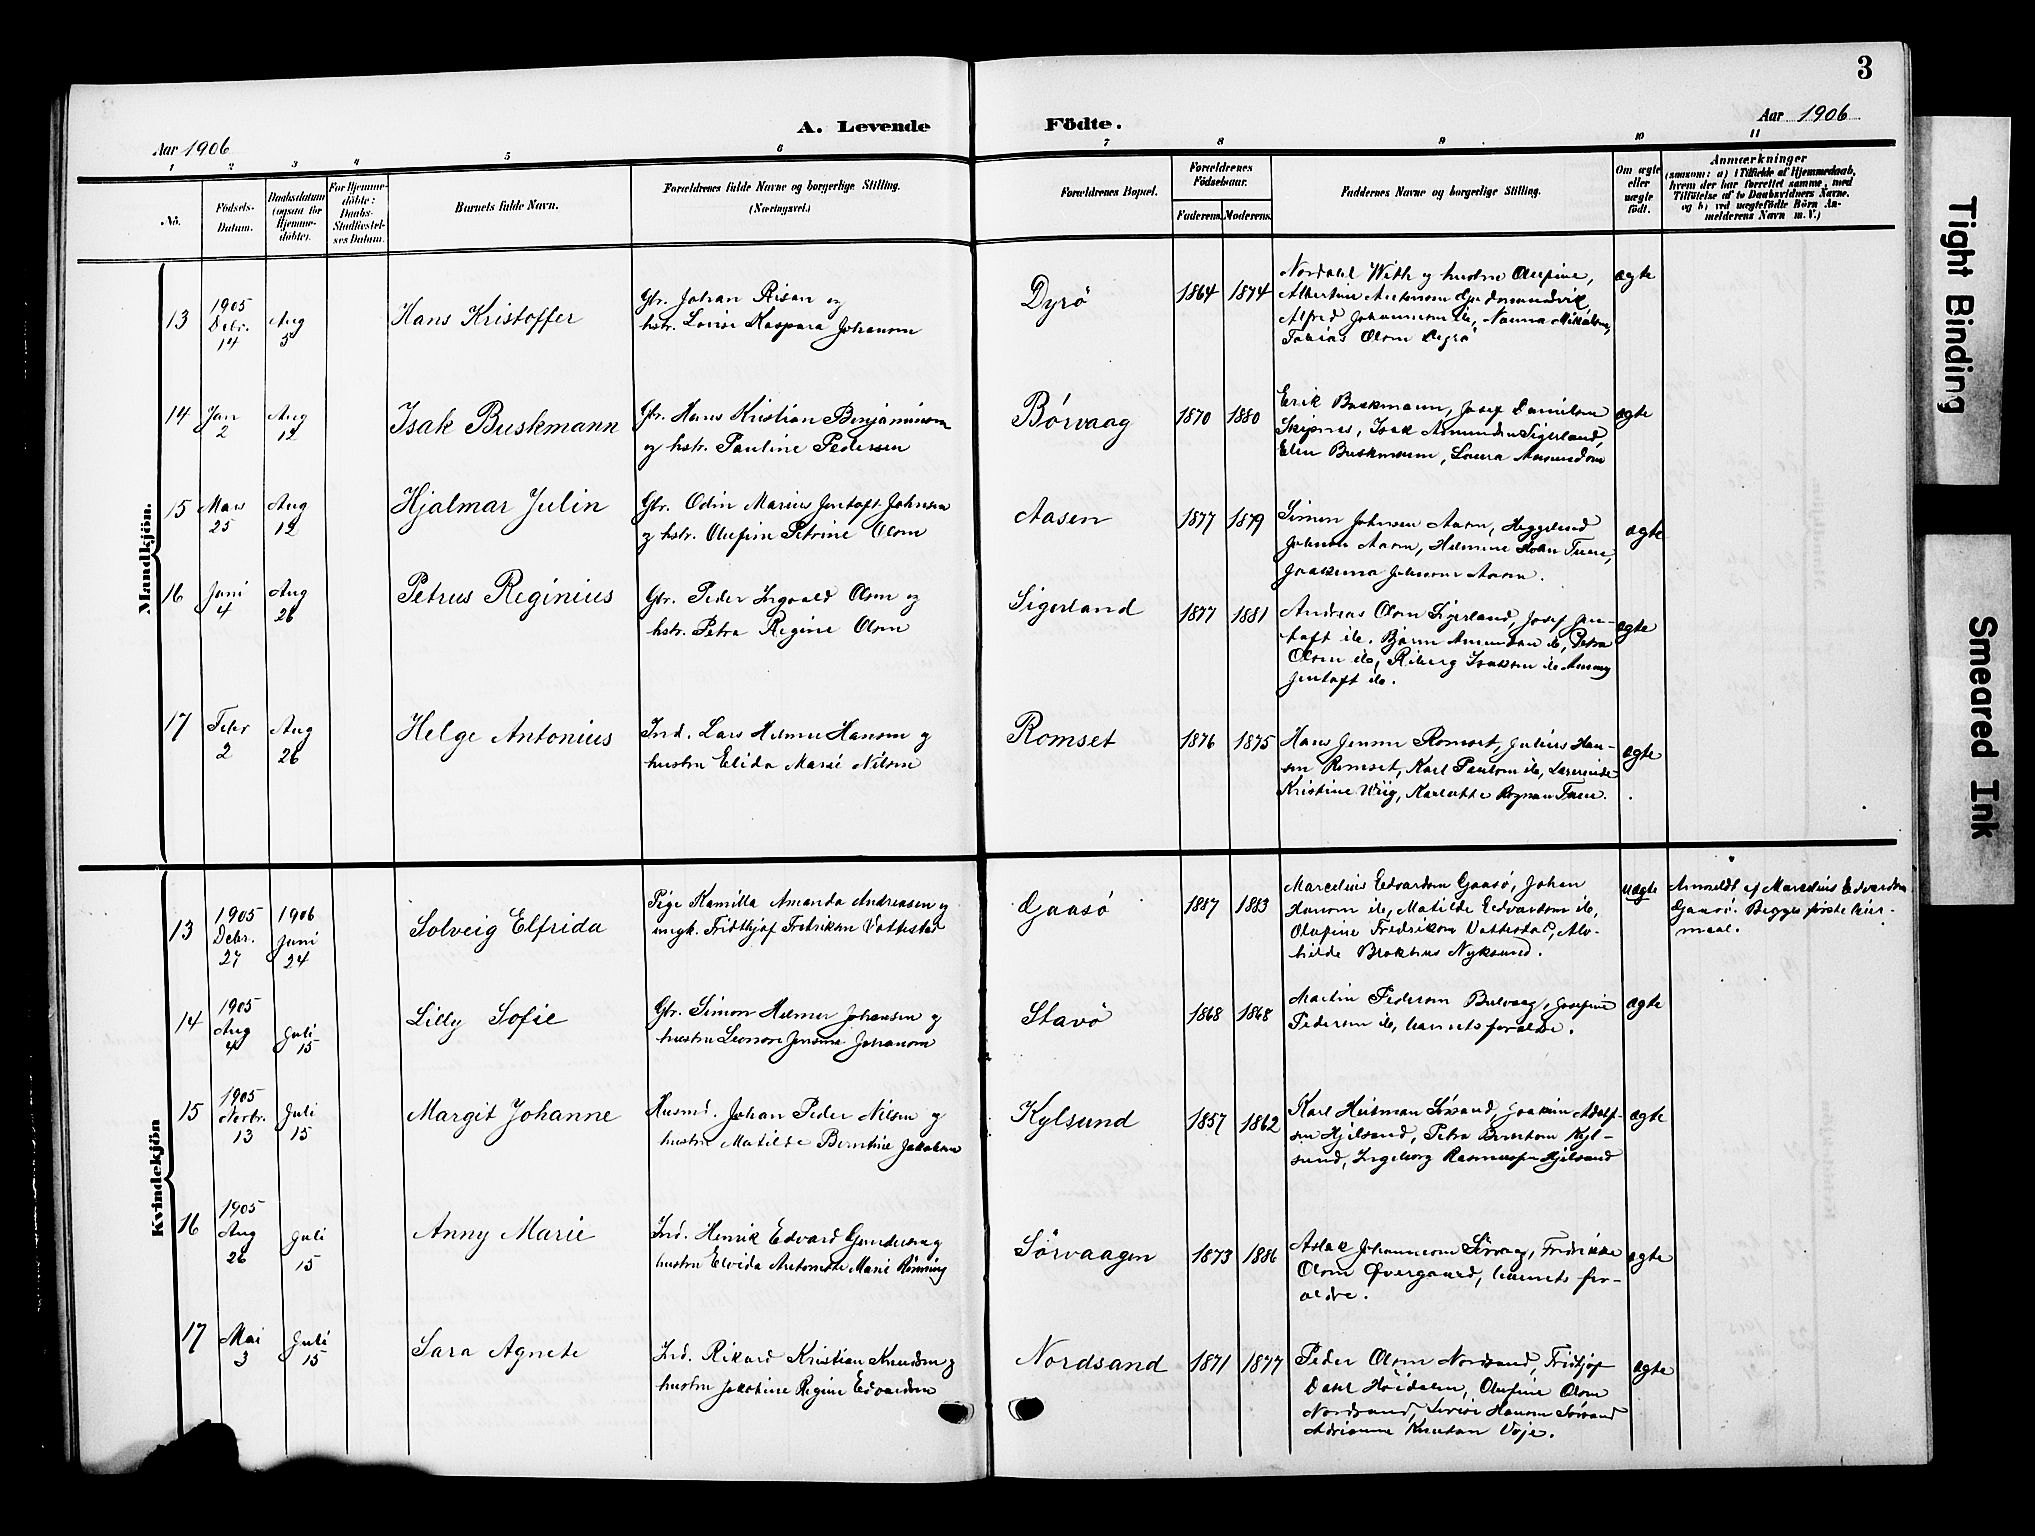 3
A. Levende Födte.
Aar 1906
Aar 1906
1 2 3 4 5 6 7 8 9 10 11
No.
Födsels-Datum.
Daabsdatum (ogsaa for Hjemme-döbte).
For Hjemme-döbte: Daabs-Stadfæstel-ses Datum.
Barnets fulde Navn.
Forældrenes fulde Navne og borgerlige Stilling. (Næringsvei.)
Forældrenes Bopæl.
Forældrenes Födselsaar.
Faderens. Moderens.
Faddernes Navne og borgerlige Stilling.
Om ægte eller uægte födt.
Anmærkninger
(saasom: a) i Tilfælde af Hjemmedaab, hvem der har forrettet samme, med Tilföielse af to Daabsvidners Navne, og b) ved uægtefödte Börn An-melderens Navn m. V.)
Mandkjön.
13 1905 Debr. 14 Aug 5 Hans Kristoffer
Gbr. Johan Risan og
hstr. Lovise Kaspara Johansen
Dyrö 1864 1874
Nordahl With og hustru Olufine,
Albertine Antonsen Gudmundvik,
Alfred Johannesen ib, Nanna Mikalsen,
Tobias Olsen Dyrö
ægte
14 Jan 2 Aug 12 Isak Buskmann
Gbr. Hans Kristian Benjaminsen
og hstr. Pauline Pedersen
Börvaag 1870 1880
Erik Buskmann, Josef Danielsen
Skipnes, Isak Amundsen Sigerland,
Elen Buskmann, Laura Amundsen
ægte
15 Mars 25 Aug 12 Hjalmar Julin
Gbr. Odin Marius Jentoft Johnsen
og hstr. Olufine Petrine Olsen
Aasen 1877 1879
Simon Johnsen Aasen,
Johnsen Aasen, Helmine
Joakima Johnsen Aasen.
ægte
16 Juni 4 Aug 26 Petrus Reginius
Gbr. Peder Ingvald Olsen og
hstr. Petra Regine Olsen
Sigerland 1877 1881
Andreas Olsen Sigerland, Josef Jen-
toft ib. Bjarne Amundsen ib, Petra
Olsen ib, Riberg Isaksen ib
Jentoft ib.
ægte
17 Febr 2 Aug 26 Helge Antonius
Ind. Lars Helmer Hansen og
hustru Elida Marie Nilsen
Romset 1876 1875
Hans Jensen Romset, Julius Han-
sen Romset, Karl Paulsen ib, Lærerinde
Kristine Wiig,
ægte
Kvindekjön
13 1905 Debr. 27 1906 Juni 24 Solveig Elfrida
Pige Kamilla Amanda Andreasen og
ungk. Fridthjof Fredriksen Vottestad
Gaasö 1887 1883
Marcelius Edvardsen Gaasö, Johan
Hansen ib, Matilde Edvardsen ib,
Olufine Fredriksen Vottestad, Alv-
hilde Brokhus Nyksund.
uægte
Anmeldt af Marcelius Edvardsen
Gaasö. Begges förste leier-
maal.
14 1905 Aug 4 Juli 15 Lilly Sofie
Gbr. Simon Helmer Johansen og
hustru Leonore Jensine Johansen
Stavö 1868 1868
Martin Pedersen Bulvaag, Josefine
Pedersen ib, barnets forældre.
ægte
15 1905 Novbr. 13 Juli 15 Margit Johanne
Husmd. Johan Peder Nilsen og
hustru Matilde Berntine Jakobsen
Kylsund 1857 1862
Karl Heitman Sörsand, Joakim Adolf-
sen Hjelsand, Petra Berntsen Kyl-
sund, Ingeborg Rasmussen Hjelsand
ægte
16 1905 Aug 26 Juli 15 Anny Marie
Ind. Henrik Edvard Gundersen og
hustru Elvida Antonette Marie Rönning
Sörvaagen 1873 1886
Aslak Johannesen Sörvaag, Fredrikke
Olsen Øvergaard, barnets for-
ældre.
ægte
17 Mai 3 Juli 15 Sara Agnete
Ind. Rikard Kristian Knudsen og
hustru Jakobine Regine Edvardsen
Nordsand 1871 1877
Peder Olsen Nordsand, Fridtjof
Dahl Höidalen, Olufine Olsen
Nordsand, Lovise Hansen Sörsand
Adrianne Knutsen Vöje.
ægte
Tight Binding
Smeared Ink